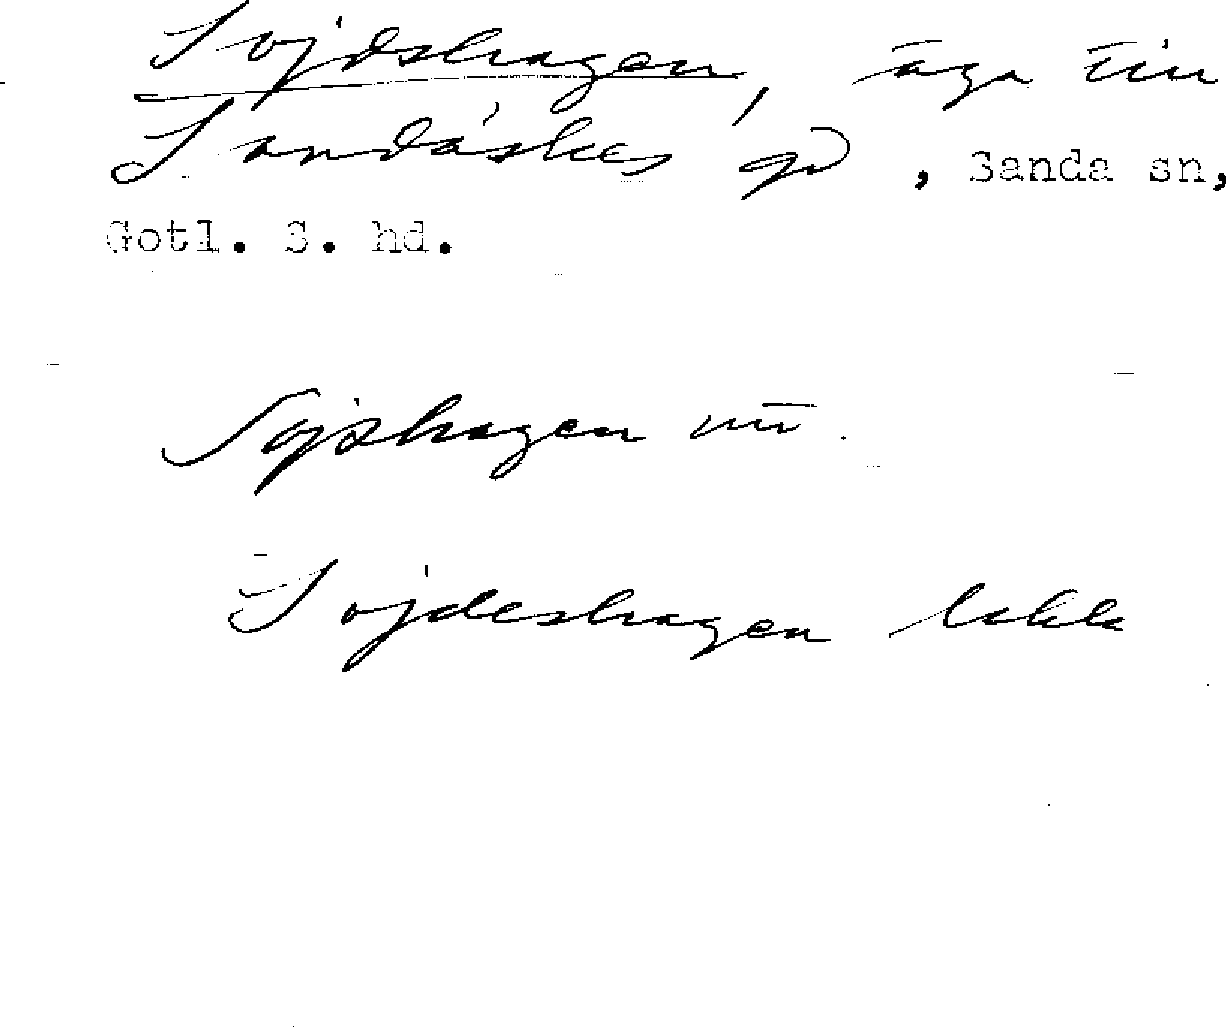 Sojdshagen, äga till
Sandäskes gd, Sanda sn,
Gotl. S. hd.
Sojshagen
Sojdeshagen